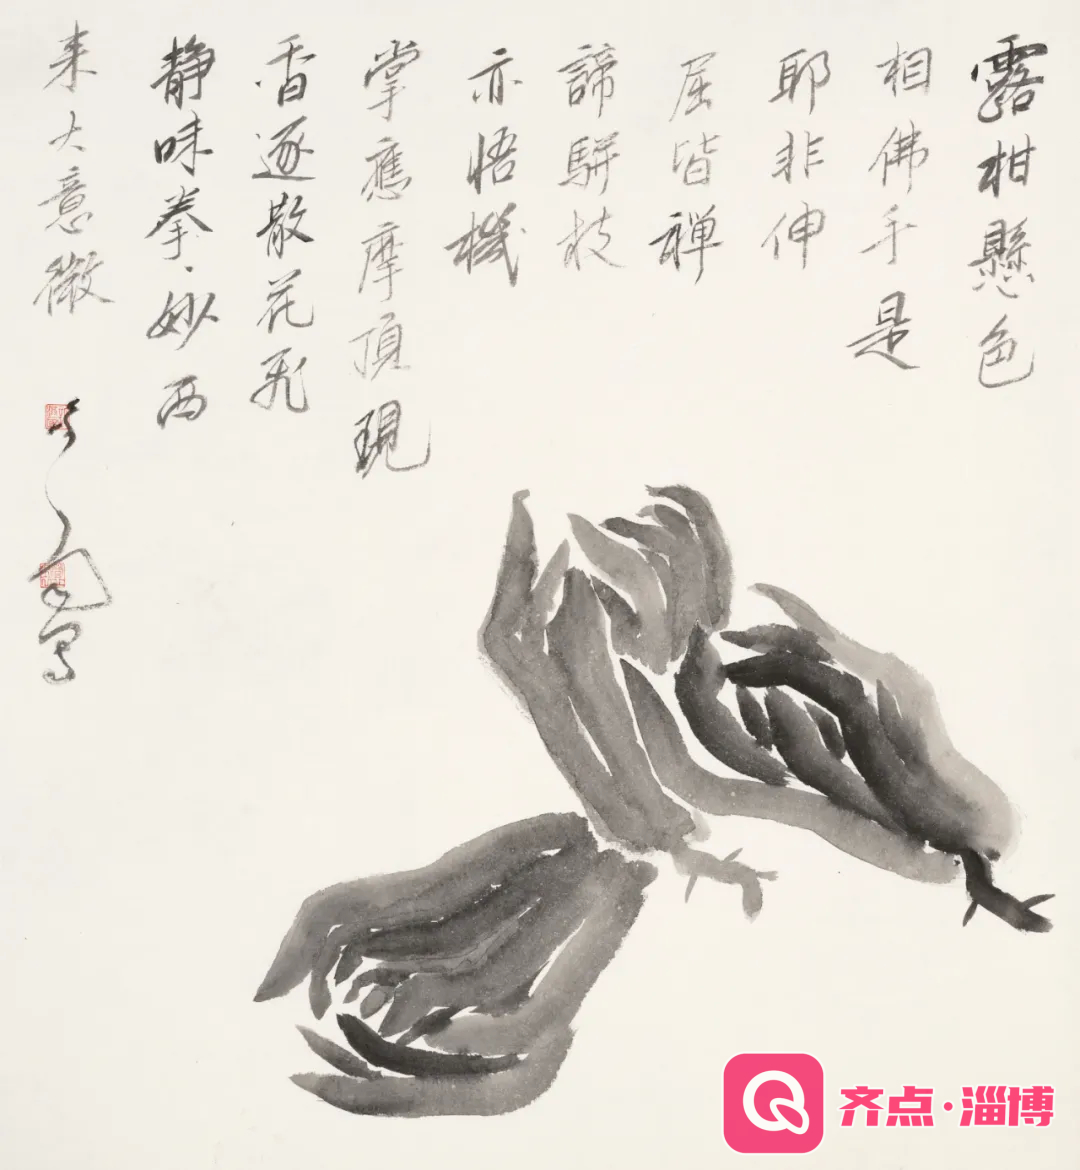 露柑懸色
相佛手是
耶非伸
屈皆禅
諦駢枝
亦悟機
掌應摩頂現
香逐散花飛
静味拳〻妙西
来大意微
写
齐点·淄博